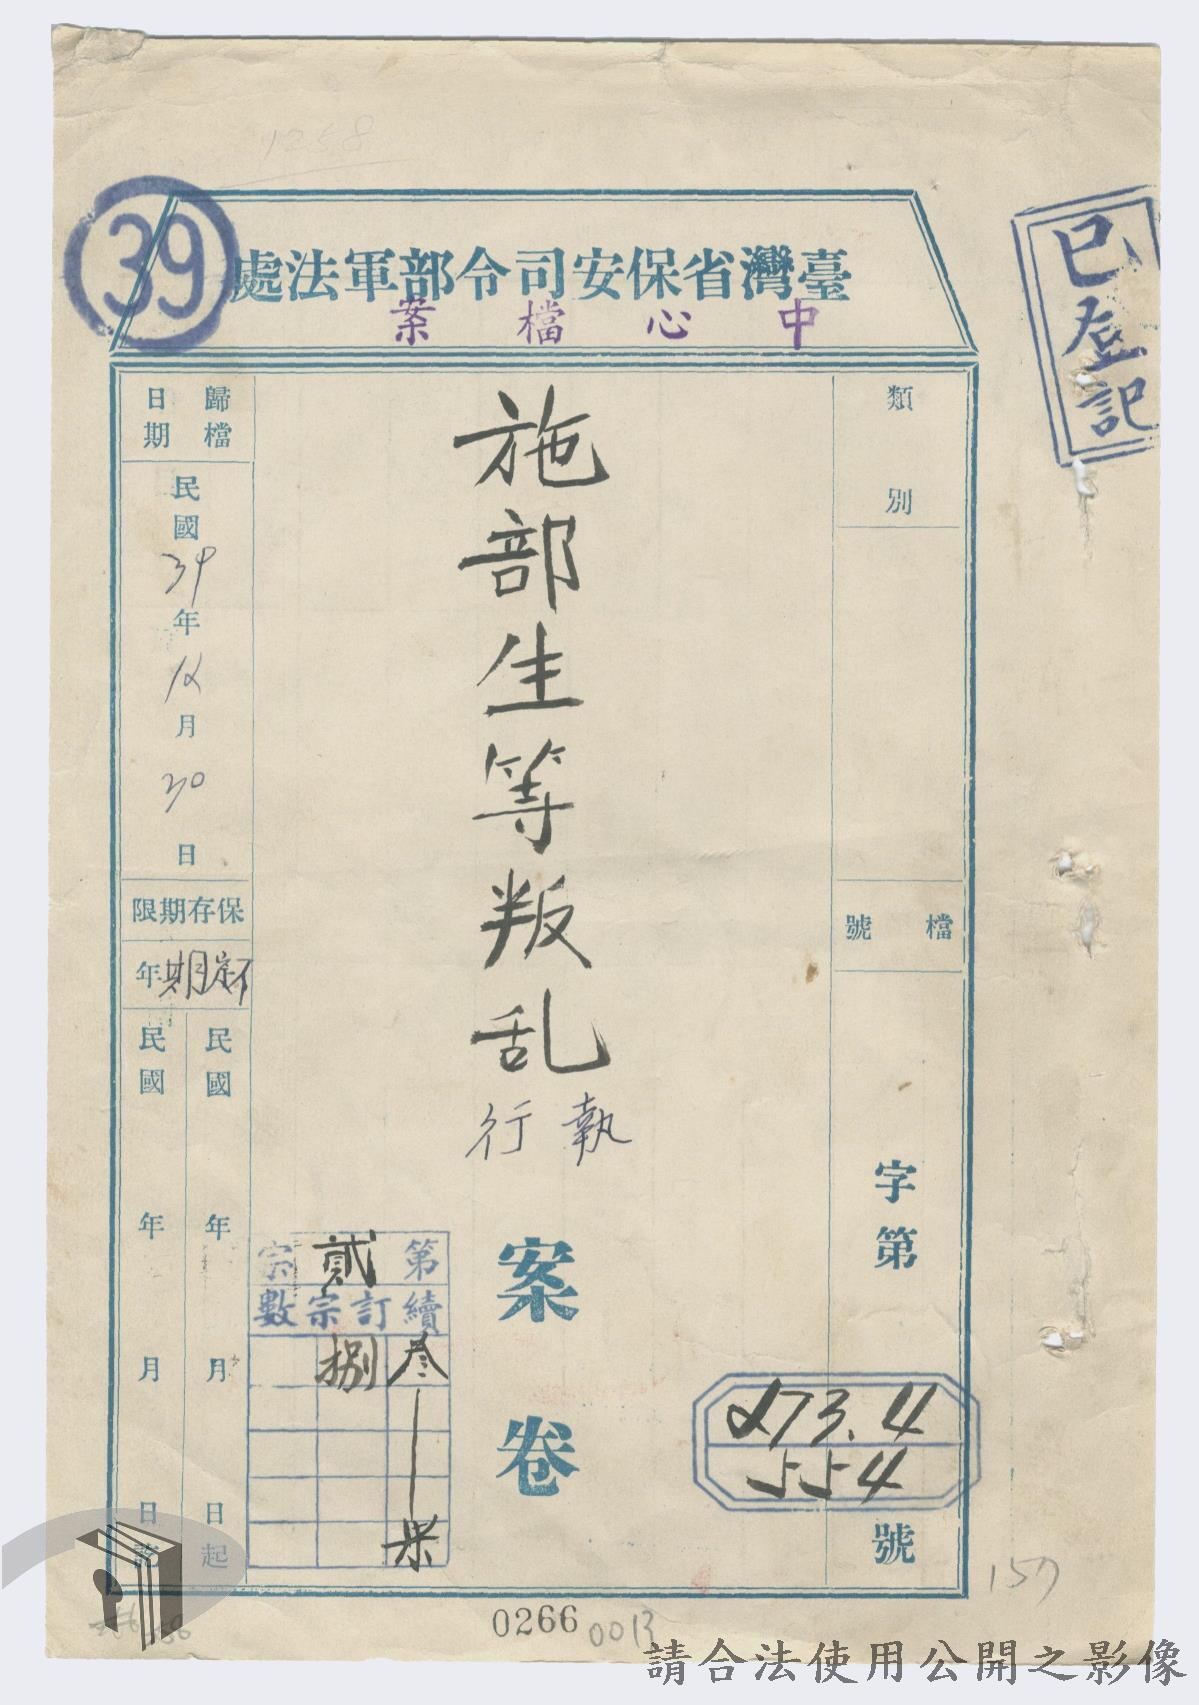 1258
39
臺灣省保安司令部軍法處
中心檔案
已登記
類別
檔號
字第
273.4
554
號
施部生等叛乱
執行
案卷
第貳宗
續訂宗數
叁
捌
歸檔日期
民國39年12月30日
保存期限
不定期年
民國 年 月 日起
民國 年 月 日訖
157
0266
0013
請合法使用公開之影像